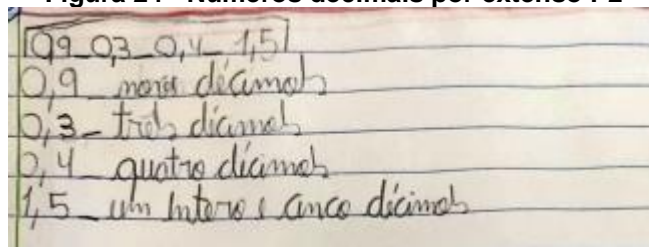 Figura 24 - Números decimais por extenso P2
0,9 _ 0,3 _ 0,4 _ 1,5
0,9 _ nove décimos
0,3 _ três dicimos
0,4 _ quatro dicimos
1,5 _ um Intero e cinco dícimos